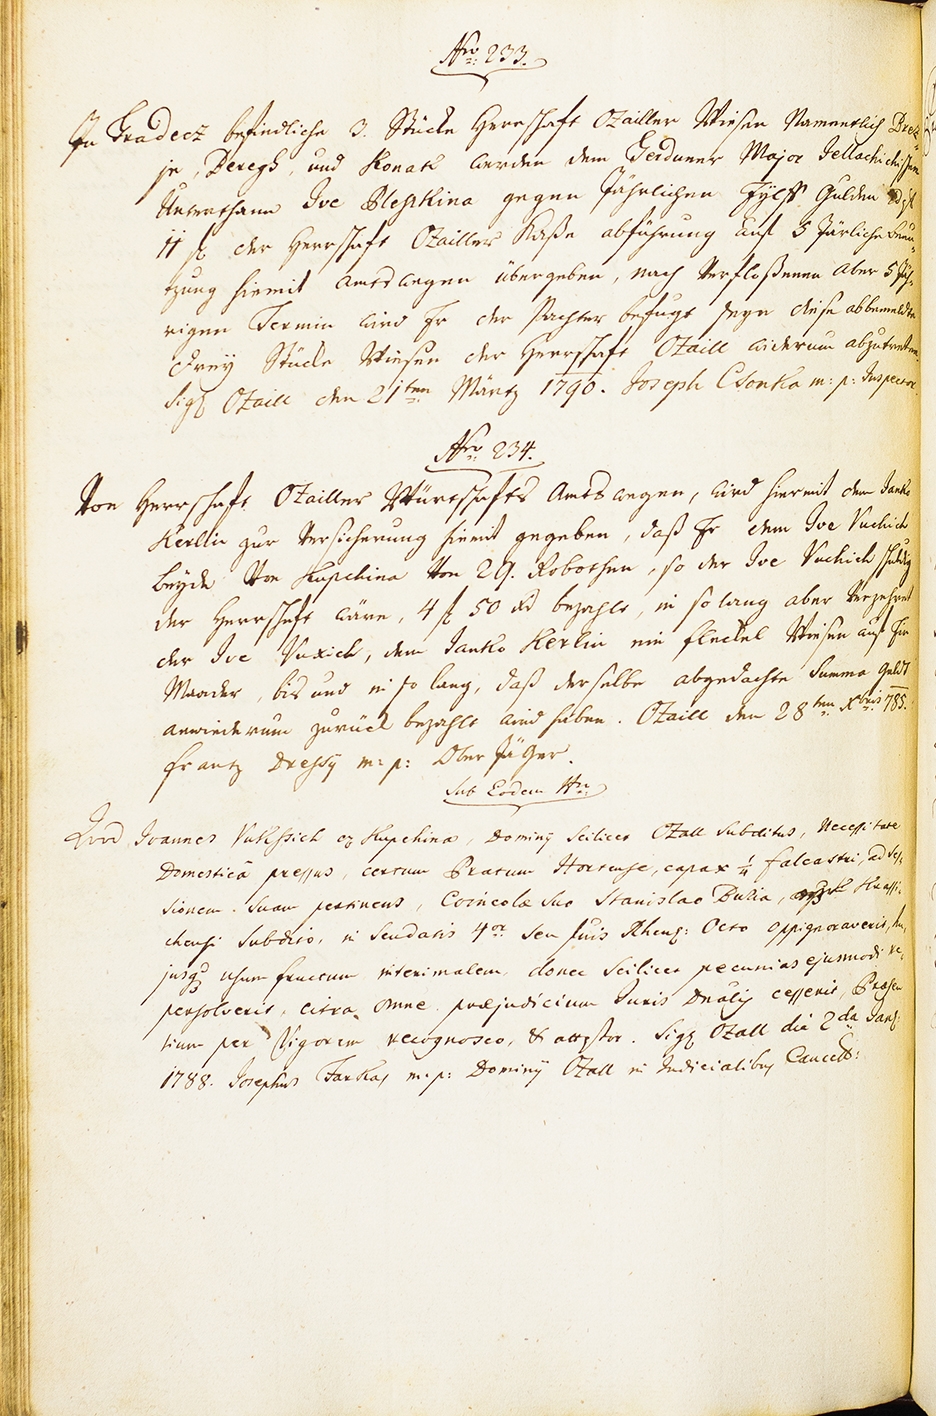 Nro 233.
In Gradecz befindliche 3. Stücke Herrschaft Ozailler Wiesen Namentlich Brez
je, Beregh, und Konak werden dem Gerduner Major Jellachichischen
Unterthann Ive Pleshkina gegen Jährlichen Eylff Gulden
11 f der Herrschaft Ozailler Kaße abführung auf 5 Järliche Benu-
tzung hiemit Amtswegen übergeben, nach Verfloßenen Aber 5 Jäh-
rigen Termin wird Er der Pachter befugt seyn diese abbemeldte
Drey Stücke Wiesen der Herrschaft Ozaill widerum abzutretten.
Sigl Ozaill den 21ten Märtz 1790. Joseph Csonka m: p: Inspector
Nro 234.
Von Herrschaft Ozailler Würthschafts Amts wegen, wird hiermit dem Janko
Kerlin zur Versicherung hiemit gegeben, daß Er dem Ive Vuchich
beyde Von Kupchina Von 29. Robothen, so der Ive Vuchich schuldig
der Herrschaft wäre, 4 f 50 xd bezahlt, in so lang aber Verzehret
der Ive Vuxich, dem Janko Kerlin ein fleckel Wiesen auf Hin
Mander, bis und in so lang, daß derselbe abgedachte Summa Geldt
anwiederum zurück bezahlt wird haben. Ozaill den 28ten Xbris 785.
Frantz Dressy m: p: Ober Jäger.
Sub Eodem Nro
Quod Joannes Vukssich ex Kupchina, Dominy Scilicet Ozall Subditus, Necessitate
Domestica pressus, certum Pratum Hortense, capax 1/4 falcastri, ad Ses-
sionem Suam pertinens, Coincolæ Suo Stanislao Bukia, Krassi-
chensi Subdito, in Scudatis 4or Seu fluis Rheng: Octo oppignoraverit, hu-
jusq3 usum fructum interimalem, donec Scilicet pecunias ejusmodi re-
persolverit, citra omne præjudicium Juris Dnalis cesserit, Præsen
tium per Vigorem recognosco, & attestor. Sigl Ozall die 2da Jany
1788. Josephus Farkas m: p: Dominy Ozall in Judicialibus Cancell: